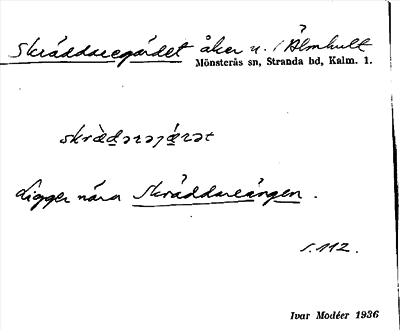 Skräddaregärdet åker u. / Älmhult
Mönsterås sn, Stranda bd, Kalm. 1.
skræ̀dərəjǽrət
Ligger nära Skräddareängen.
s. 112.
Ivar Modéer 1936